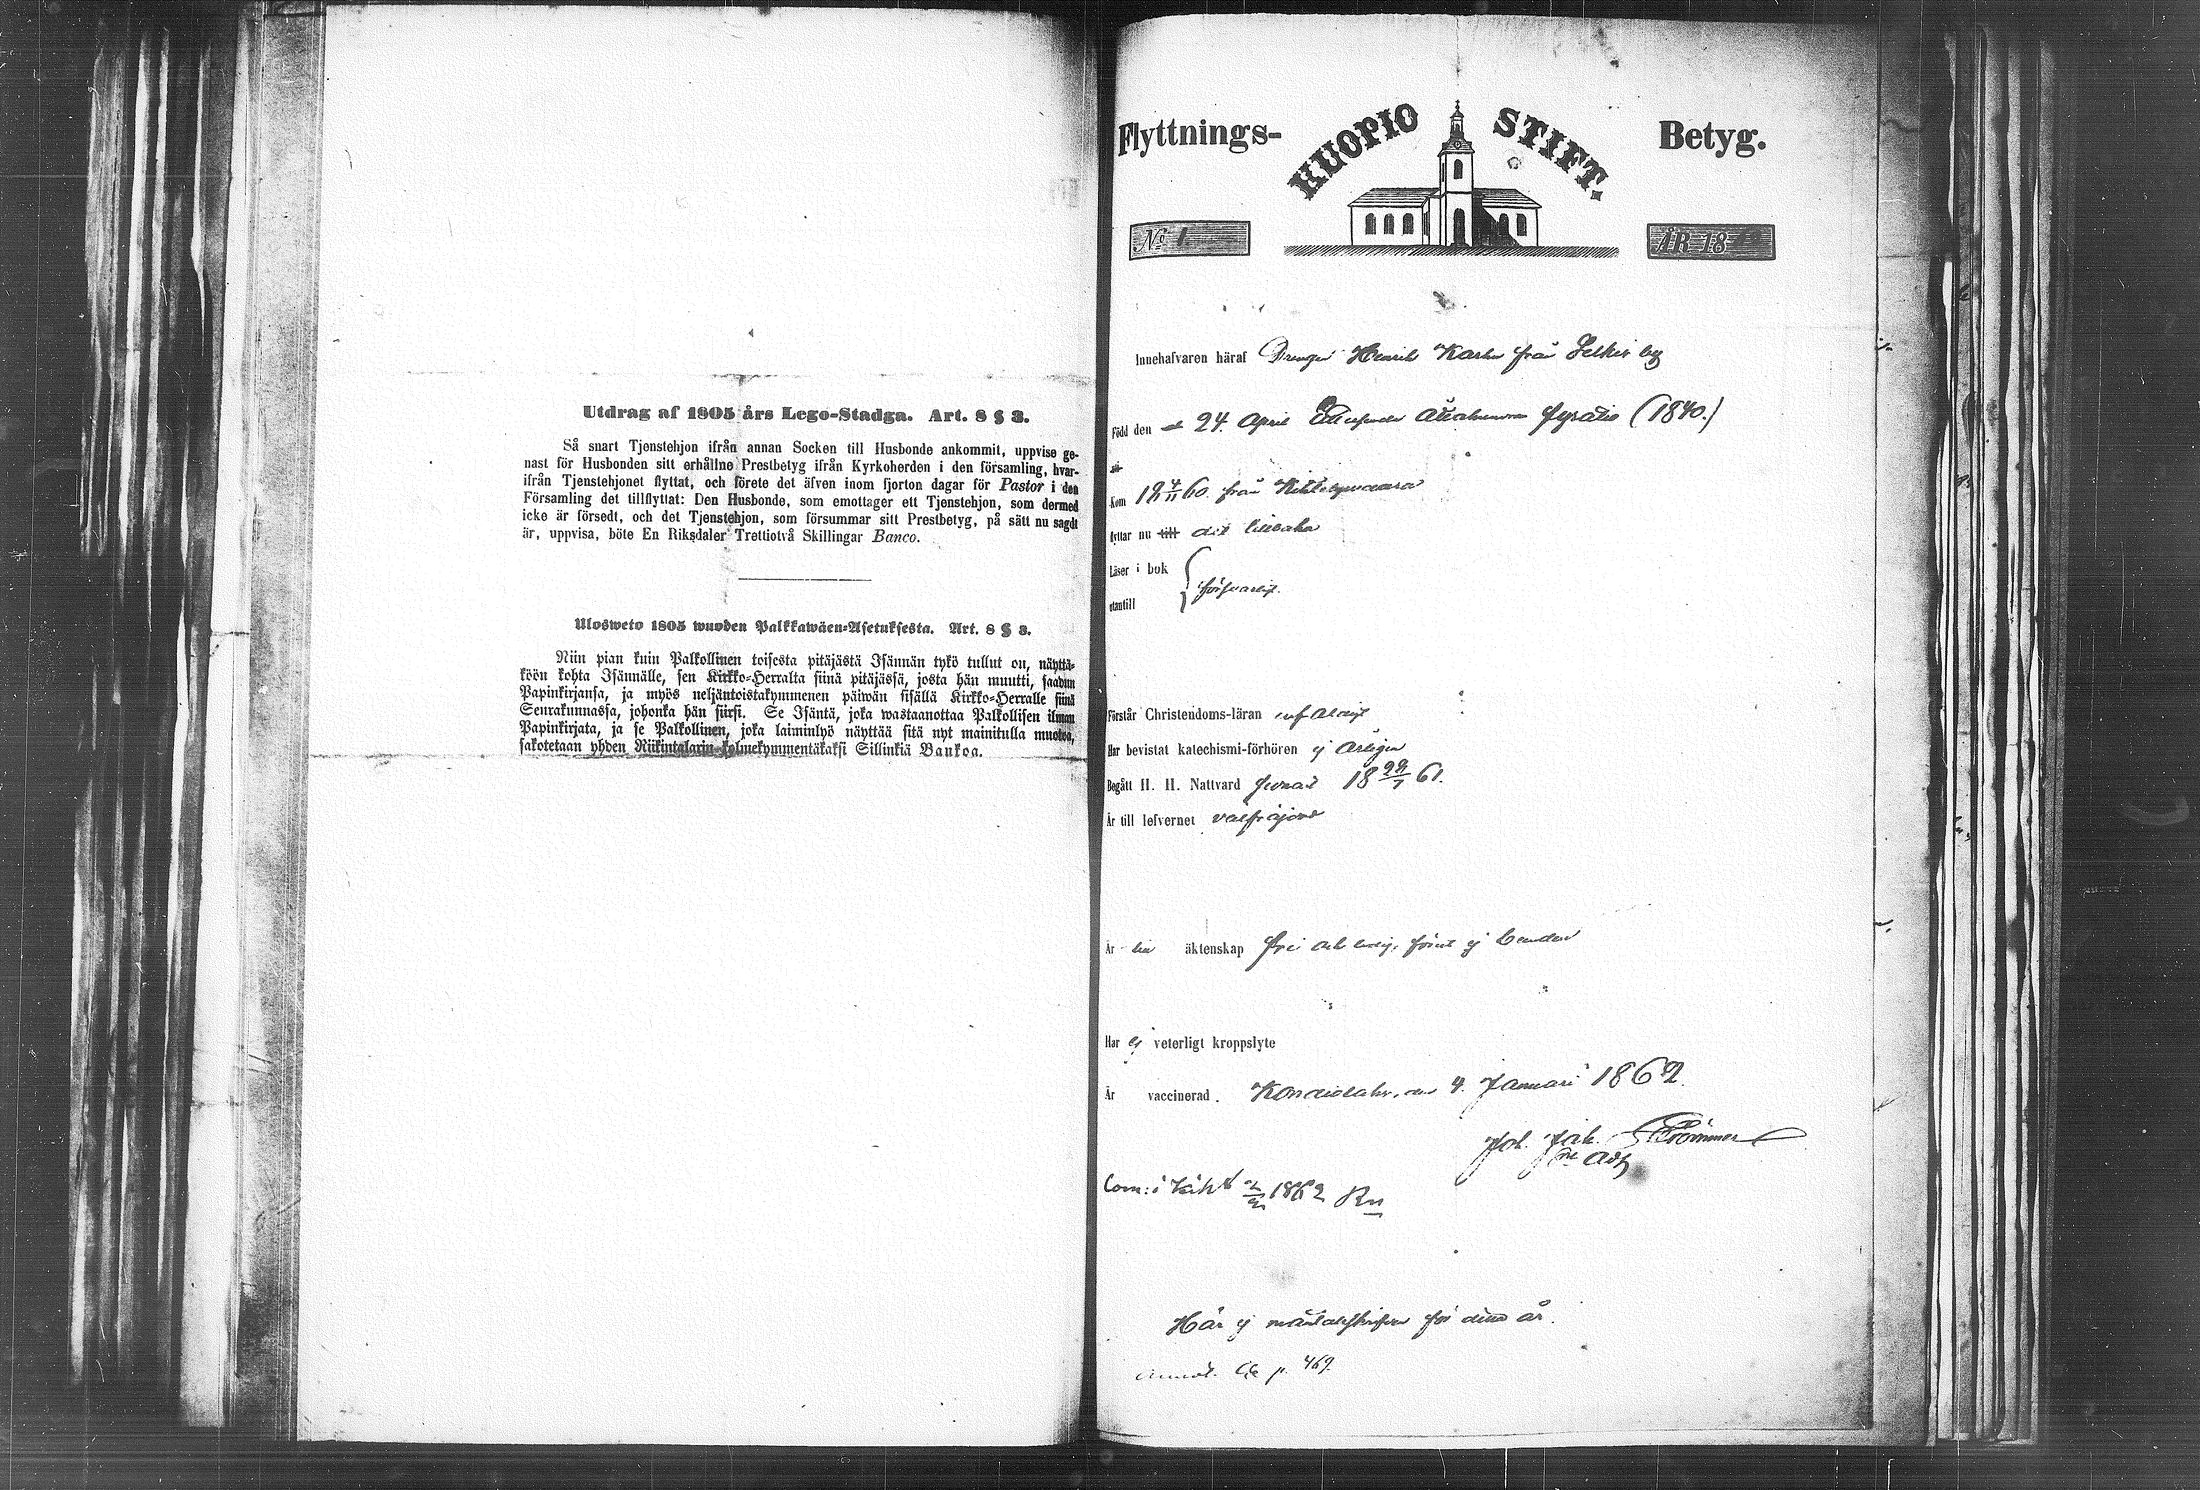 Utdrag af 1805 års Lego-Stadga. Art. 8 § 3.
Så snart Tjenstehjon ifrån annan Socken till Husbonde ankommit, uppvise ge-
nast för Husbonden sitt erhållne Prestbetyg ifrån Kyrkoherden i den församling, hvar-
ifrån Tjenstehjonet flyttat, och förete det äfven inom fjorton dagar för Pastor i den
Församling det tillflyttat: Den Husbonde, som emottager ett Tjenstehjon, som dermed
icke är försedt, och det Tjenstehjon, som försummar sitt Prestbetyg, på sätt nu sagdt
är, uppvisa, böte En Riksdaler Trettiotvå Skillingar Banco.
Ulosweto 1805 wuoden Palkkawäen-Asetuksesta. Art. 8 § 3.
Niin pian kuin Palkollinen toisesta pitäjästä Isännän tykö tullut on, näyttä-
köön kohta Isännälle, sen Kirkko-Herralta siinä pitäjässä, josta hän muutti, saadun
Papinkirjansa, ja myös neljäntoistakymmenen päiwän sisällä Kirkko-Herralle siinä
Seurakunnassa, johonka hän siirsi. Se Isäntä, joka wastaanottaa Palkollisen ilman
Papinkirjata, ja se Palkollinen, joka laiminlyö näyttää sitä nyt mainitulla muotoa,
sakotetaan yhden Riikintalarin kolmekymmentäkaksi Sillinkiä Bankoa.
Flyttnings- KUOPIO STIFT. Betyg.
No 1 ÅR 18
Innehafvaren häraf Drengen Henrik Karhu från Selkis by
Född den 24 April Ettusende Åttahundra fyratio (1840.)
Kom 18 4/11 60 från
flyttar nu till dit tillbaka
Läser i bok
utantill försvarligt.
Förstår Christendoms-läran enfaldigt
Har bevistat katechismi-förhören ej årligen
Begått H. H. Nattvard senast 18 28/7 61.
Är till lefvernet välfräjdad
Är till äktenskap fri och ledig, först ej bunden
Har ej veterligt kroppslyte
Är vaccinerad. Kontiolaks, den 4 Januari 1862.
Joh. Jak. Strömmer
Adj
1862
Här ej mantalsskrifven för detta år.
p. 469.